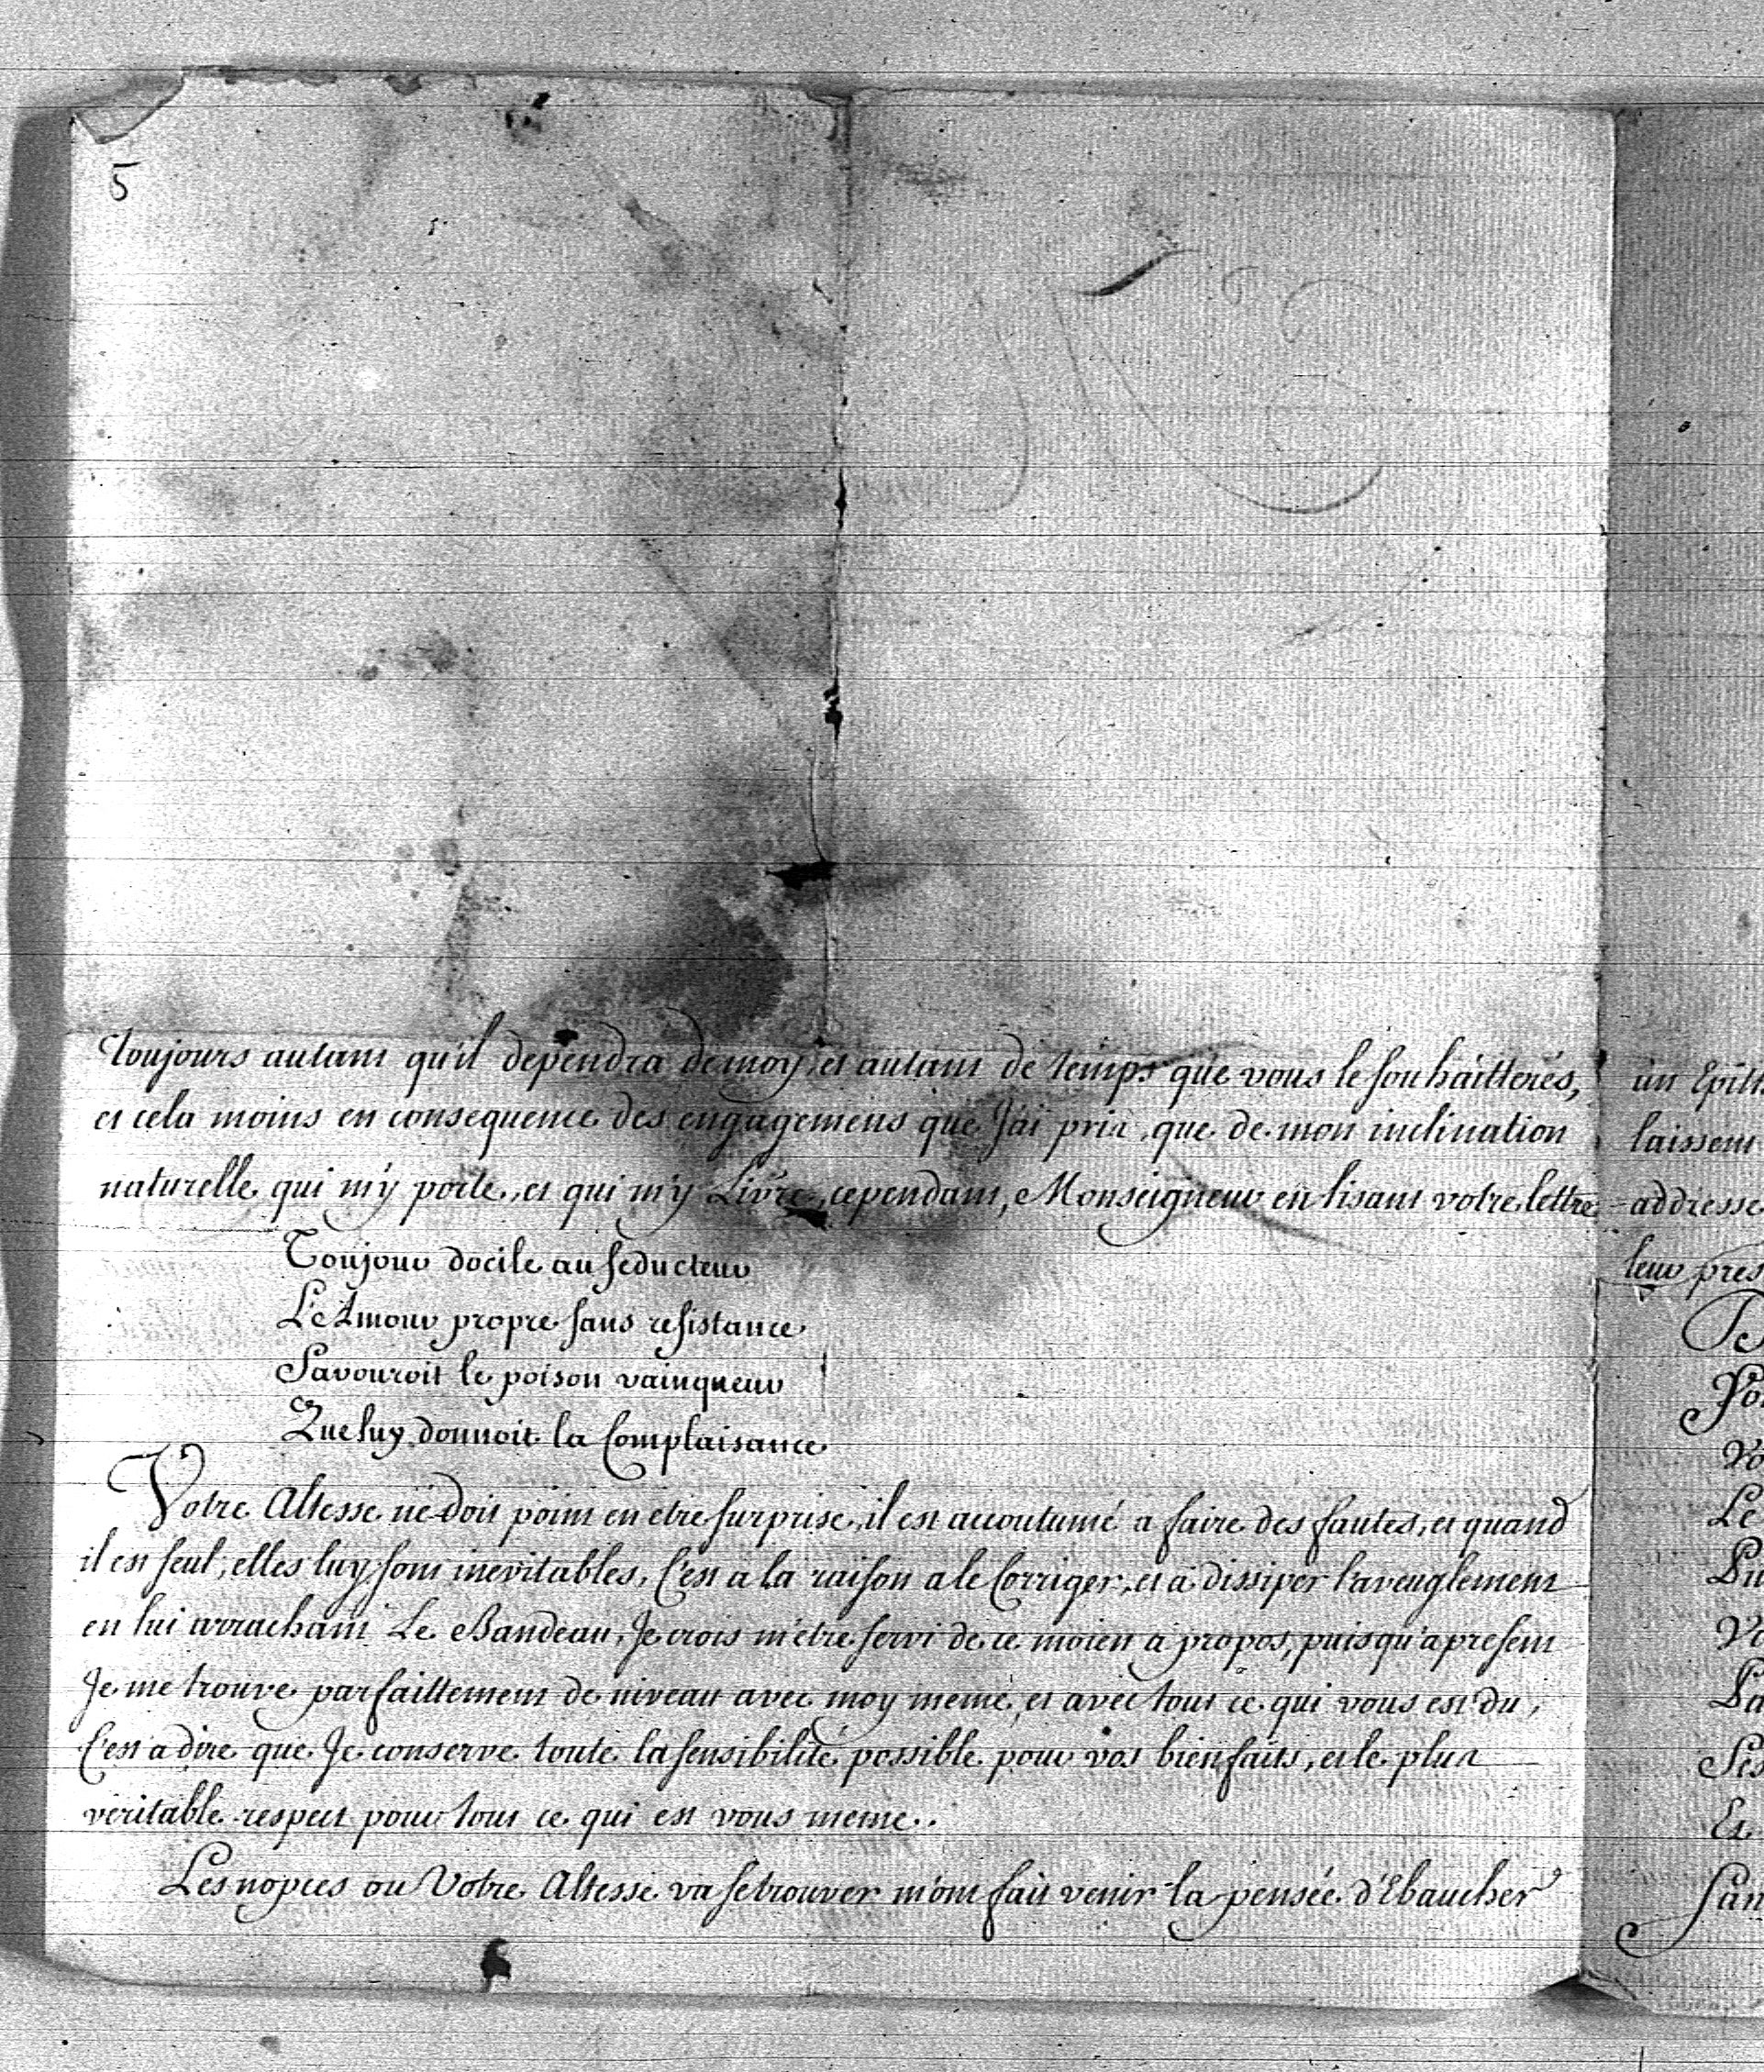 5
Toujours autant qu'il dependra de moy, et autant de temps que vous le souhaitterés,
et cela moins en consequence des engagemens que J'ai pris, que de mon inclination
naturelle qui m'y porte, et qui m'y Livre, cependant, Monseigneur en lisant votre lettre
Toujour docile au seducteur
L'Amour propre sans resistance
Savouroit le poison vainqueur
Que luy donnoit la Complaisance
Votre Altesse ne doit point en etre surprise, il est accoutumé a faire des fautes, et quand
il est seul, elles luy sont inevitables, C'est a la raison a le Corriger, et a dissiper l'aveuglement
en lui arrachant Le Bandeau, Je crois m'etre servi de ce moien a propos, puisqu'a present
Je me trouve parfaittement de niveau avec moy meme, et avec tout ce qui vous est du,
C'est a dire que Je conserve toute la sensibilité possible pour vos bienfaits, et le plus
veritable respect pour tout ce qui est vous meme.
Les nopces ou Votre Altesse va se trouver m'ont fait venir la pensée d'Ebaucher
un
laissent
addresse
leur
Le
Et